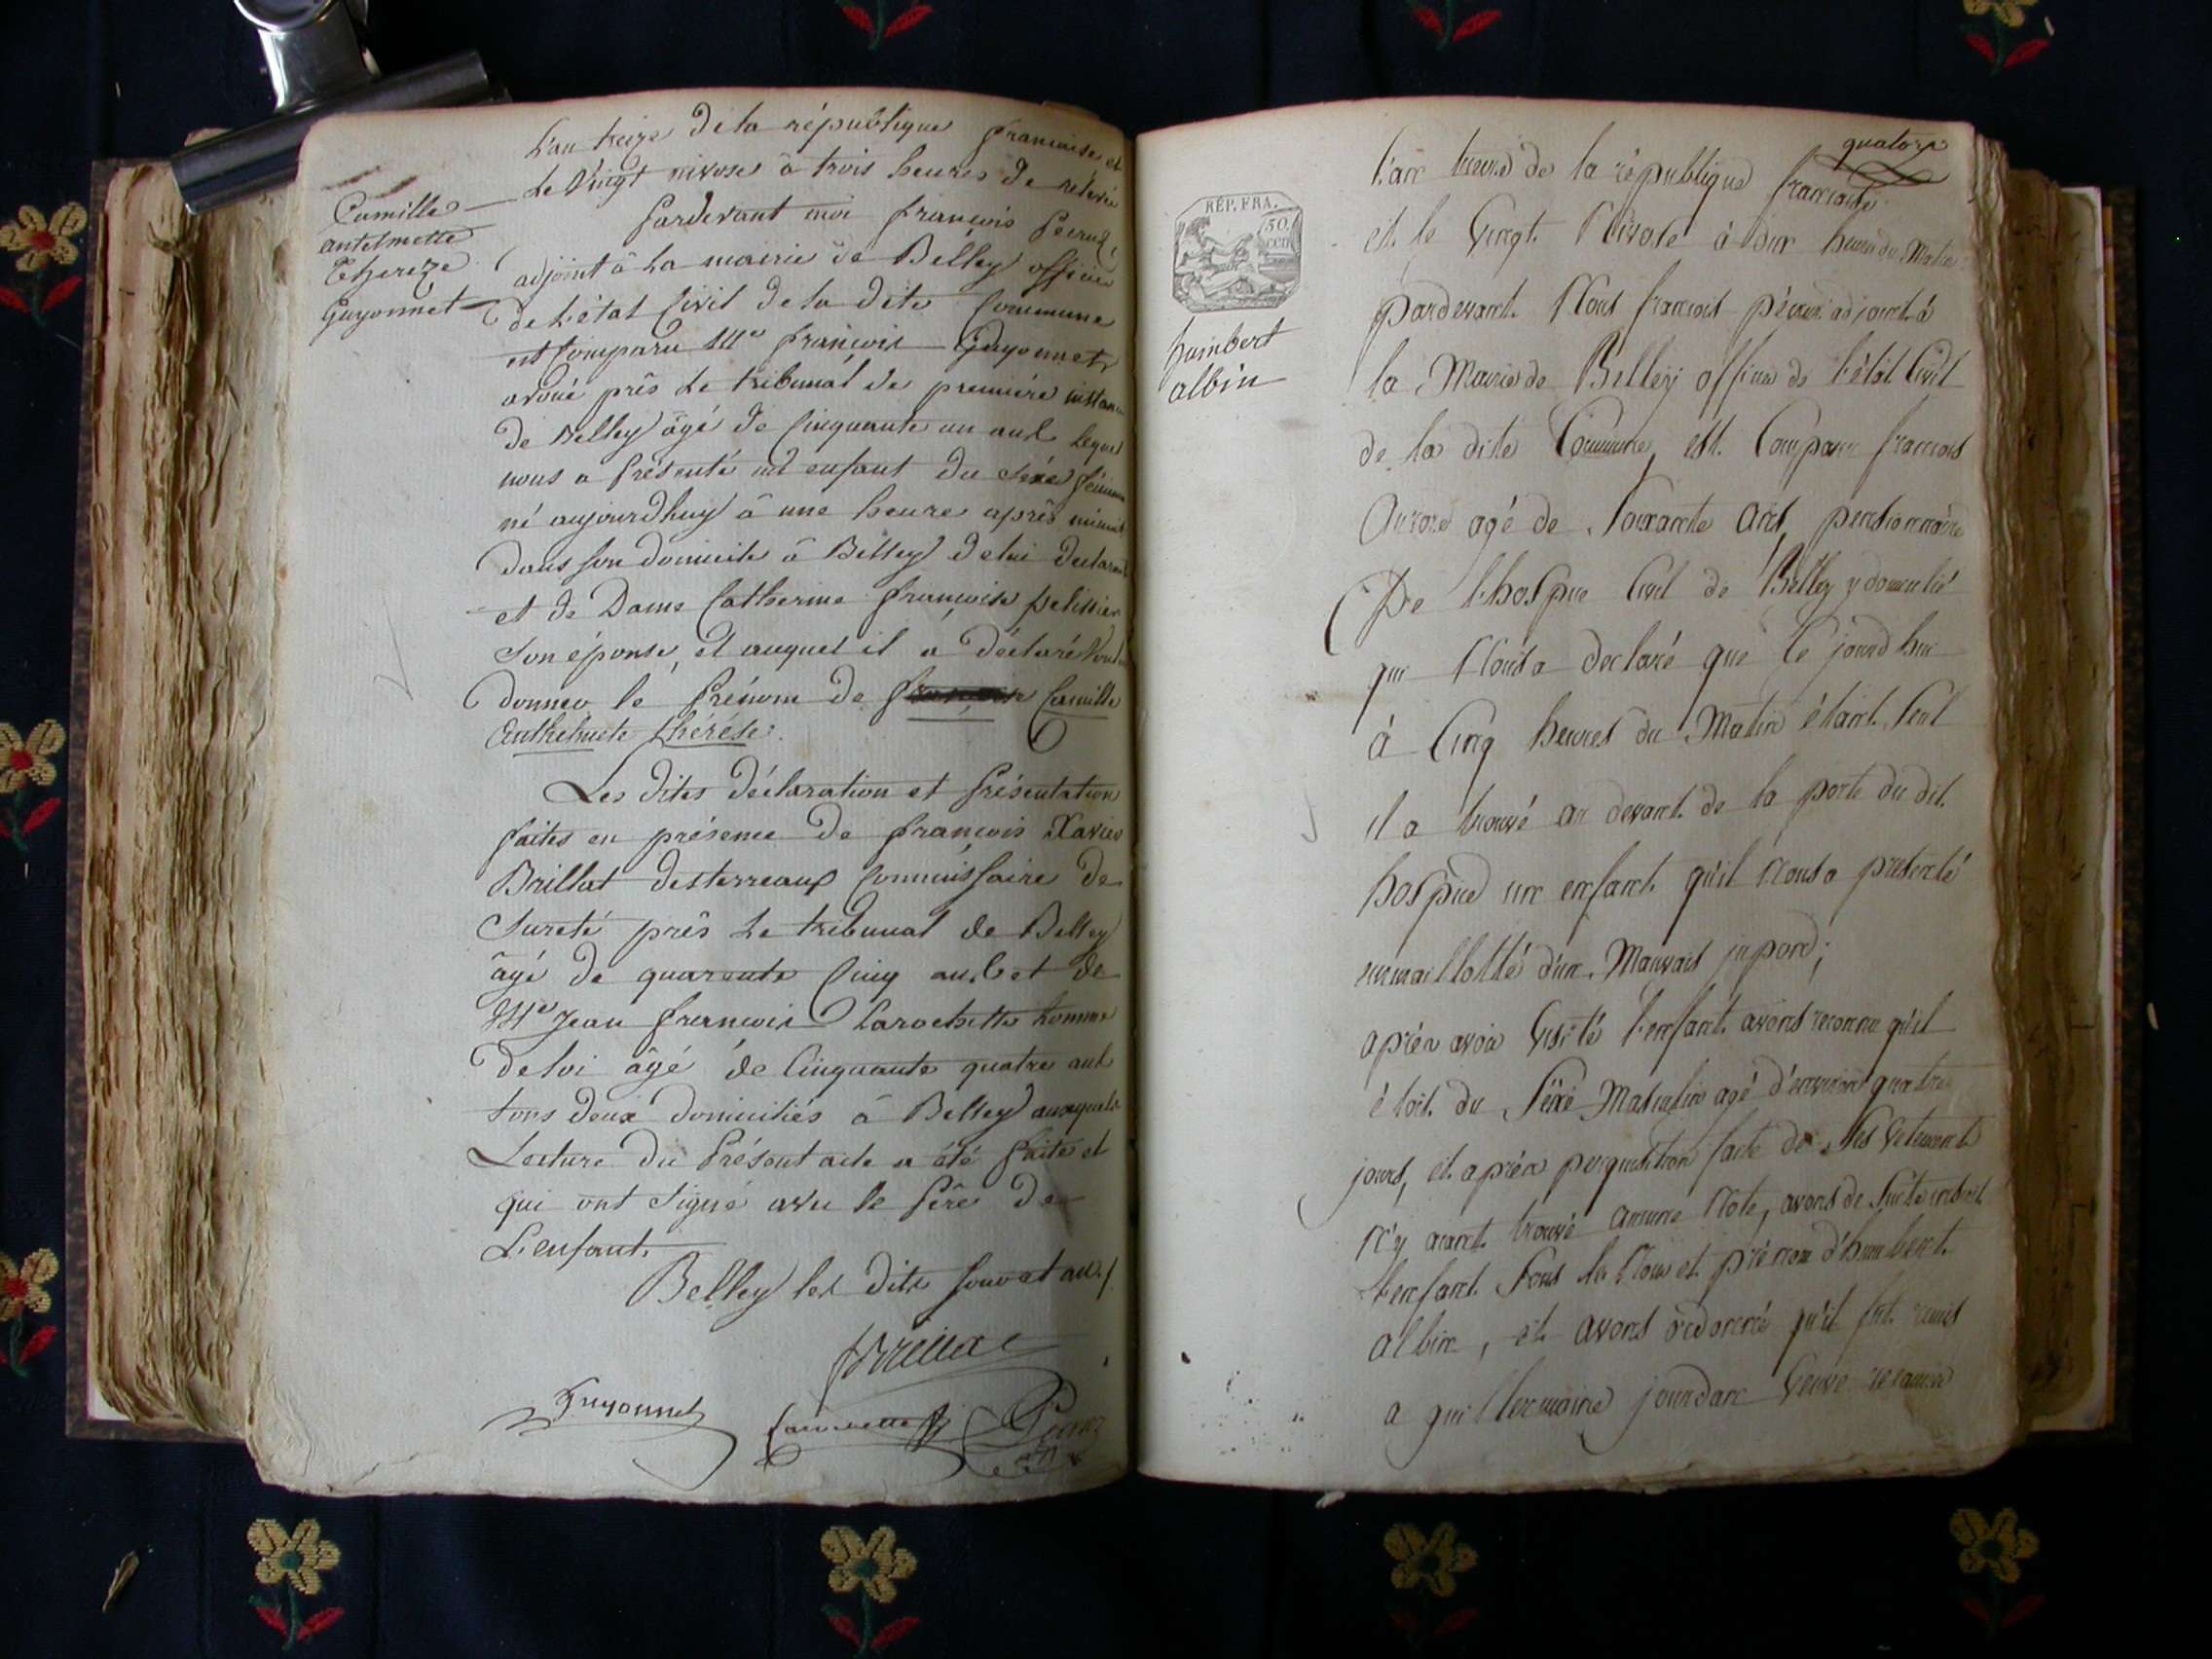 L'an treize de la république francaise et
Le Vingt nivose à trois heures de relevée
Pardevant moi françois Peiruz,
adjoint à La mairie de Belley officier
de L'état Civil de la dite Commune
est Comparu Me françois Guyonnet
avoué près Le tribunal de première instance
de Belley âgé de Cinquante un ans Lequel
nous a Présenté un enfant du sexe féminin
né aujourdhuy à une heure après minuit
dans son domicile à Belley de lui déclarant
et de Dame Catherine françoise pelissier
son épouse, et auquel il a déclaré Vouloir
donner le Prénom de Camille
Anthelmete thérése.
Camille
antelmette
Thereze
Guyonnet
Les dites déclaration et Présentation
faites en présence de françois Xavier
Brillat desterreaux Commissaire de
Sureté près Le tribunal de Belley
âgé de quarente Cinq ans et de
Me Jean francois Larochette homme
de loi âgé de Cinquante quatre ans
tous deux domiciliés à Belley auxquels
Lecture du Présent acte a été faite et
qui ont signé avec le Père de
L'enfant.
Belley les dits jour et an
Guyonnet
quatorze
RÉP. FRA.
50.
cen
humbert
albin
L'an treize de la république francaise
et le Vingt Nivose à dix heures du Matin
pardevant Nous francois adjoint à
la Mairie de Belley officier de l'état Civil
de la dite Commune, est Comparu francois
agé de Soixante ans, pensionnaire
De l'hospice Civil de Belley y domicilié
qui Nous a declaré que Ce jourdhui
à Cinq heures du Matin étant seul
il a trouvé au devant de la porte du dit
hospice un enfant qu'il Nous a présenté
emmaillotté d'un Mauvais jupond;
aprés avoir Visité l'enfant avons reconnu qu'il
étoit du Sexe Masculin agé d'environ quatre
jours, et aprés perquisition faite de ses Vetements
N'y ayant trouvé aucune Note, avons de suite inscrit
l'enfant Sous les Nom et prénom d'humbert
albin, et avons ordonné qu'il fut remis
a guillermaine jourdan Veuve